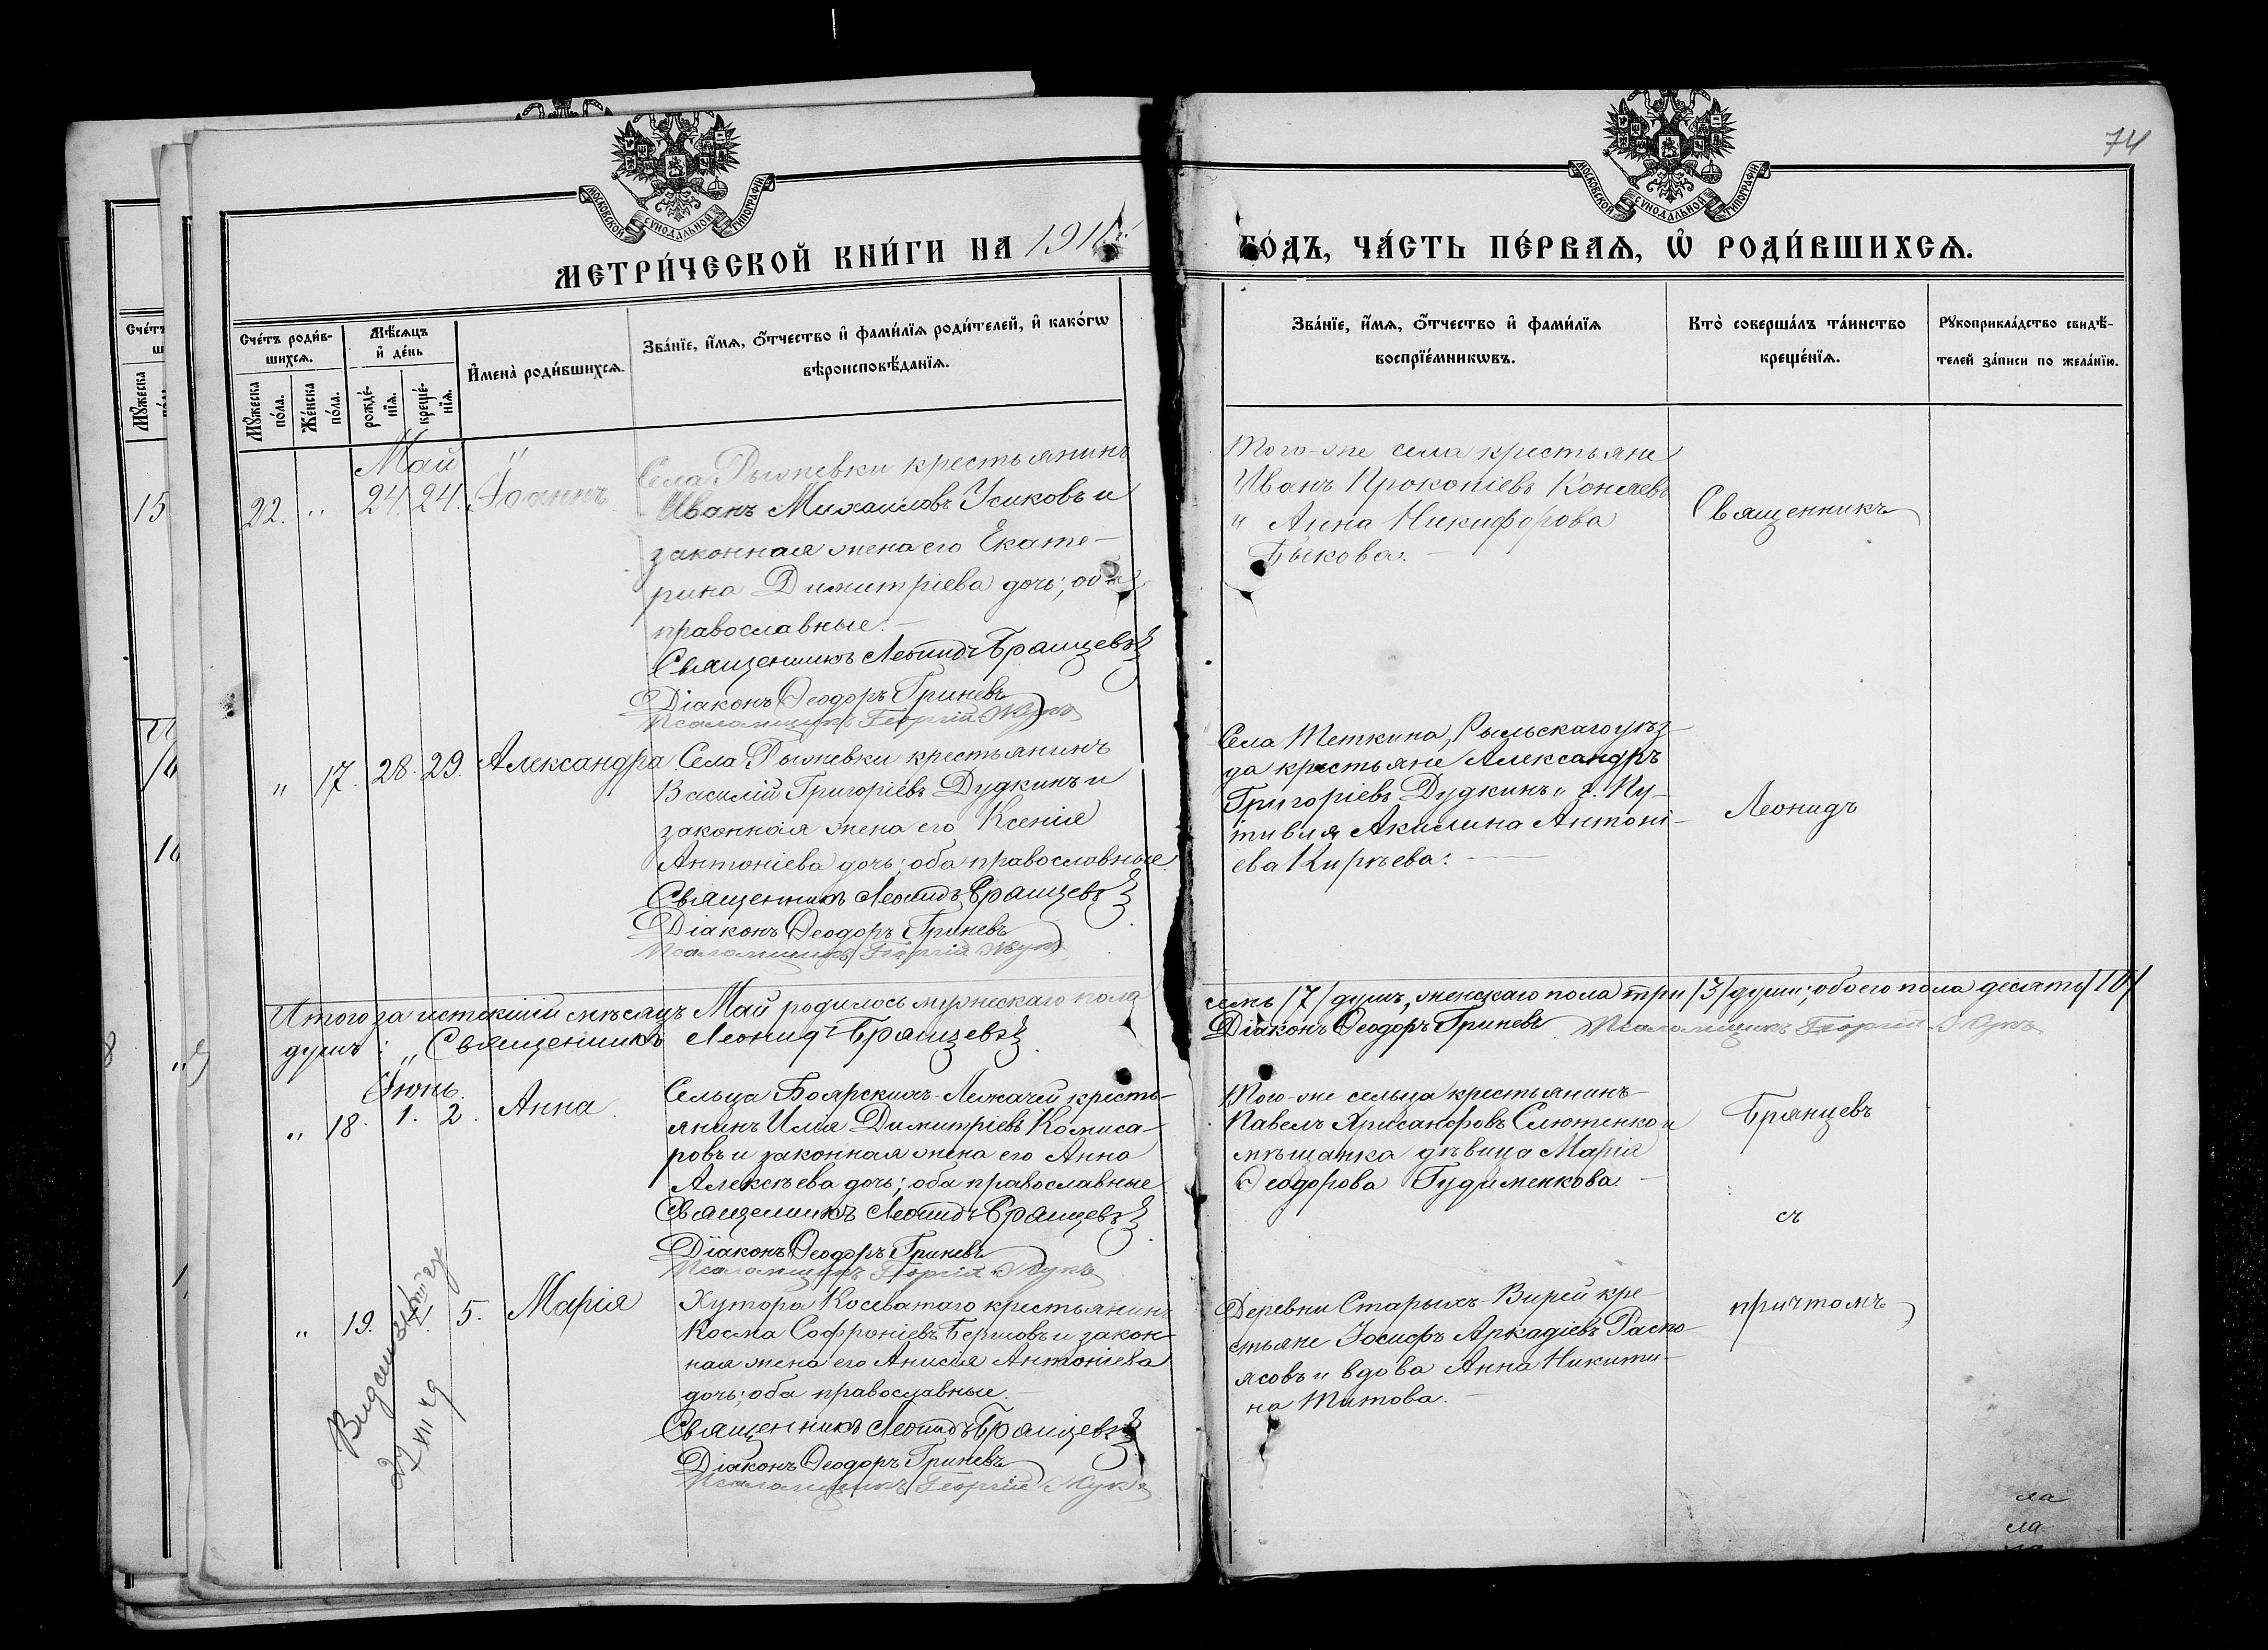 74
МОСКОВСКОЙ СѴНОДАЛЬНОЙ ТИПОГРАФІИ
МОСКОВСКОЙ СѴНОДАЛЬНОЙ ТИПОГРАФІИ
МЕТРИ́ЧЕСКОЙ КНИ́ГИ НА 191
ГО́ДЪ, ЧА́СТЬ ПЕ́РВАѦ, Ѡ҆ РОДИ́ВШИХСѦ.
Счéтъ роди́в-
шихсѧ.
Мꙋ́жеска по́ла.
Же́нска по́ла.
Мѣ́сѧцъ
и҆ де́нь
рожде́-
нїѧ.
креще́-
нїѧ.
И҆мена̀ роди́вшихсѧ.
Зва́нїе, и҆́мѧ, ѻ҆́тчество и҆ фами́лїѧ роди́телей, и҆ како́гѡ
вѣроисповѣ́данїѧ.
Зва́нїе, и҆́мѧ, ѻ҆́тчество и҆ фами́лїѧ
воспрїе́мникѡвъ.
Кто̀ соверша́лъ та́инство
креще́нїѧ.
Рꙋкоприкла́дство свидѣ́-
телей за́писи по жела́нїю.
Май
22. " 24. 24. Іоаннъ
Села Рыжевки крестьянинъ
Иванъ Михаиловъ Усиковъ и
законная жена его Екате-
рина Димитріева дочь; оба
православные.
Священникъ Леонидъ Брянцевъ
Діаконъ Ѳеодоръ Гриневъ
Псаломщикъ Георгій Жукъ
Того-же села крестьяне
Иванъ Прокопіевъ Коняевъ
и Анна Никифорова
Быкова.
Священникъ
" 17. 28. 29. Александра
Села Рыжевки крестьянинъ
Василій Григоріевъ Дудкинъ и
законная жена его Ксенія
Антоніева дочь; оба православные
Священникъ Леонидъ Брянцевъ
Діаконъ Ѳеодоръ Гриневъ
Псаломщикъ Георгій Жукъ
Села Теткина, Рыльскаго уѣз-
да крестьяне Александръ
Григоріевъ Дудкинъ и г. Пу-
тивля Акилина Антоні-
ева Кирѣева.
Леонидъ
Итого за истекшій мѣсяцъ Май родилось мужескаго пола
семь /7/ душъ, женскаго пола три /3/ души; обоего пола десять /10/
душъ: Священникъ Леонидъ Брянцевъ
Діаконъ Ѳеодоръ Гриневъ Псаломщикъ Георгій Жукъ
Іюнь.
" 18. 1. 2. Анна
Сельца Боярскихъ-Лежачей кресть-
янинъ Илія Димитріевъ Комиса-
ровъ и законная жена его Анна
Алексѣева дочь; оба православные
Священникъ Леонидъ Брянцевъ
Діаконъ Ѳеодоръ Гриневъ
Псаломщикъ Георгій Жукъ
Того-же сельца крестьянинъ
Павелъ Хрисанфовъ Слютенко и
мѣщанка дѣвица Марія
Ѳеодорова Гудименкова.
Брянцевъ
съ
" 19. 5. Марія
Хутора Косеватаго крестьянинъ
Косма Софроніевъ Бершовъ и закон-
ная жена его Анисія Антоніева
дочь; оба православные.
Священникъ Леонидъ Брянцевъ
Діаконъ Ѳеодоръ Гриневъ
Псаломщикъ Георгій Жукъ
Деревни Старыхъ-Вирей кре-
стьяне Іосифъ Аркадіевъ Распо-
ясовъ и вдова Анна Никити-
на Титова.
причтомъ